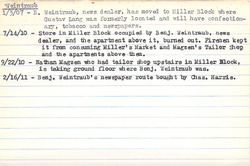 Weintraub
1/3/07 - B. Weintraub, news dealer, has moved to Miller Block where
Gustav Lang was formerly located and will have confection-
ary, tobacco and newspapers.
7/14/10 - Store in Miller Block occupied by Benj. Weintraub, news
dealer, and the apartment above it, burned out. Firemen kept
it from consuming Miller's Market and Magzen's Tailor Shop
and the apartments above them.
9/22/10 - Nathan Magsen who had tailor shop upstairs in Miller Block,
is taking ground floor where Benj. Weintraub was.
2/16/11 - Benj. Weintraub's newspaper route bought by Chas. Harris.